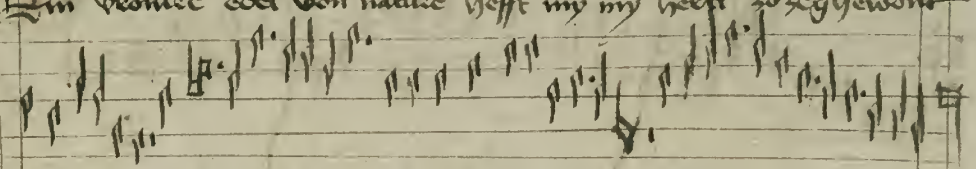 Ein vrouwe edel von nature hefft my my hertt zo zeghewont